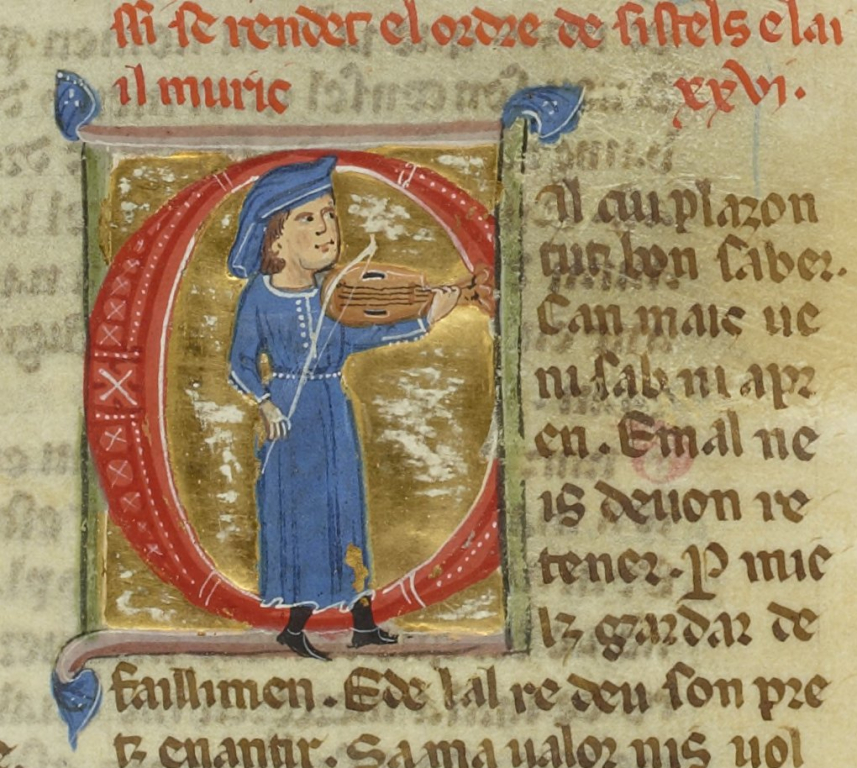 ssi se rendet el ordre de sistels e lai
il muric xxvi.
CIl cui plazon
tuit bon saber.
Can mais ue
ni sab ni apr
en. E mal ne
is deuon re
tener. P mie
lz gardar de
faillimen. E de lal re deu son pre
tz enantir. Sa ma ualor nis uol